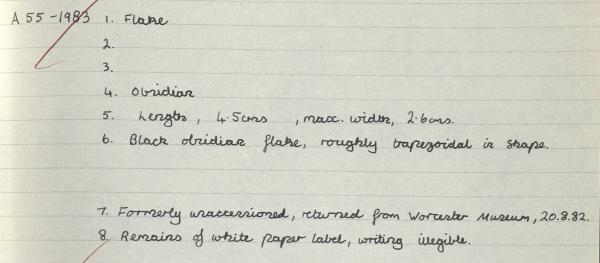 A 55-1983 1. Flake
2.
3.
4. Obsidian
5. Length, 4.5cms , max. width, 2.6cms.
6. Black obsidian flake, roughly trapezoidal in shape.
7. Formerly unaccessioned, returned from Worcester Museum, 20.8.82.
8. Remains of white paper label, writing illegible.